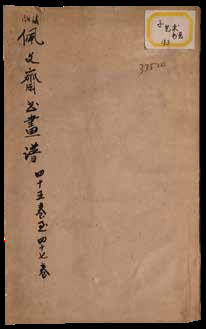 佩文齋書畫譜
四十五卷至四十七卷
子 艺术
书画
33520